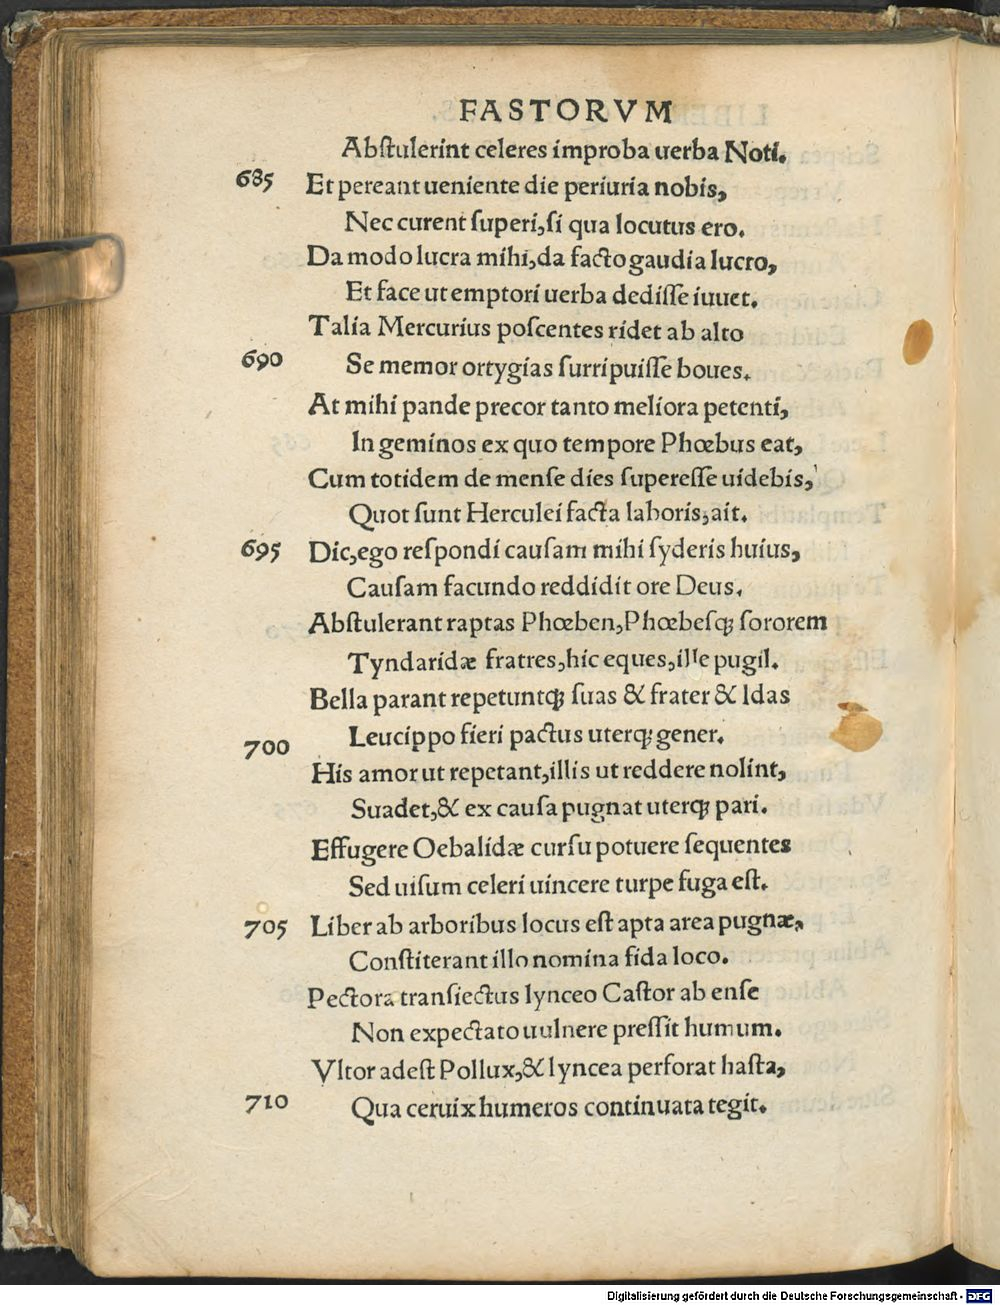 FASTORVM
Abſtulerint celeres improba uerba Noti.
685 Et pereant ueniente die periuria nobis,
Nec curent ſuperi, ſi qua locutus ero.
Da modo lucra mihi, da facto gaudia lucro,
Et face ut emptori uerba dediſſe iuuet.
Talia Mercurius poſcentes ridet ab alto
690 Se memor ortygias ſurripuiſſe boues.
At mihi pande precor tanto meliora petenti,
In geminos ex quo tempore Phœbus eat,
Cum totidem de menſe dies ſupereſſe uidebis,
Quot ſunt Herculei facta laboris, ait.
695 Dic, ego reſpondi cauſam mihi ſyderis huius,
Cauſam facundo reddidit ore Deus.
Abſtulerant raptas Phœben, Phœbeſq; ſororem
Tyndaridæ fratres, hic eques, ille pugil.
Bella parant repetuntq; ſuas & frater & Idas
700 Leucippo fieri pactus uterq; gener.
His amor ut repetant, illis ut reddere nolint,
Suadet, & ex cauſa pugnat uterq; pari.
Effugere Oebalidæ curſu potuere ſequentes
Sed uiſum celeri uincere turpe fuga eſt.
705 Liber ab arboribus locus eſt apta area pugnæ,
Conſtiterant illo nomina fida loco.
Pectora tranſiectus lynceo Caſtor ab enſe
Non expectato uulnere preſſit humum.
Vltor adeſt Pollux, & lyncea perforat haſta,
710 Qua ceruix humeros continuata tegit.
Digitalisierung gefördert durch die Deutsche Forschungsgemeinschaft - DFG